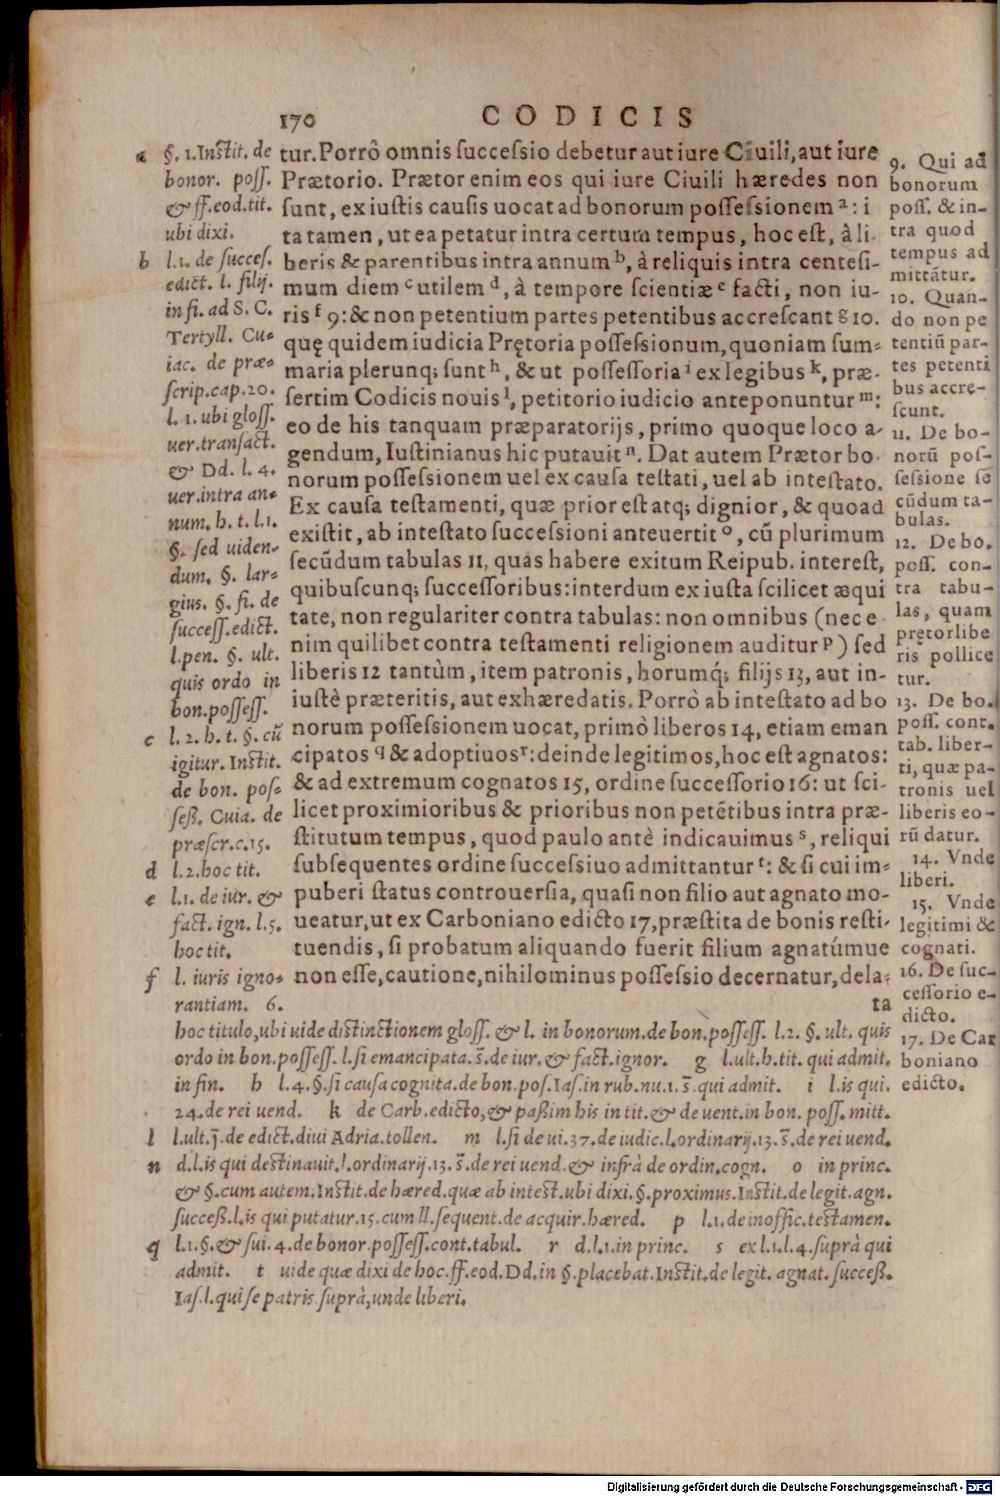 170 CODICIS
tur. Porrò omnis successio debetur aut iure Ciuili, aut iure
Prætorio. Prætor enim eos qui iure Ciuili hæredes non
sunt, ex iustis causis uocat ad bonorum possessionem ᵃ: i
ta tamen, ut ea petatur intra certum tempus, hoc est, à li-
beris & parentibus intra annum ᵇ, à reliquis intra centesi-
mum diem ᶜ utilem ᵈ, à tempore scientiæ ᵉ facti, non iu-
ris ᶠ 9: & non petentium partes petentibus accrescant ᵍ 10.
quę quidem iudicia Prętoria possessionum, quoniam sum-
maria plerunq; sunt ʰ, & ut possessoria ⁱ ex legibus ᵏ, præ-
sertim Codicis nouis ˡ, petitorio iudicio anteponuntur ᵐ:
eo de his tanquam præparatorijs, primo quoque loco a-
gendum, Iustinianus hic putauit ⁿ. Dat autem Prætor bo-
norum possessionem uel ex causa testati, uel ab intestato.
Ex causa testamenti, quæ prior est atq; dignior, & quoad
existit, ab intestato successioni anteuertit ᵒ, cũ plurimum
secũdum tabulas 11, quas habere exitum Reipub. interest,
quibuscunq; successoribus: interdum ex iusta scilicet æqui
tate, non regulariter contra tabulas: non omnibus (nec e-
nim quilibet contra testamenti religionem auditur ᵖ) sed
liberis 12 tantùm, item patronis, horumq́; filijs 13, aut in-
iustè præteritis, aut exhæredatis. Porrò ab intestato ad bo
norum possessionem uocat, primò liberos 14, etiam eman
cipatos q & adoptiuos ʳ: deinde legitimos, hoc est agnatos:
& ad extremum cognatos 15, ordine successorio 16: ut sci-
licet proximioribus & prioribus non petẽtibus intra præ-
stitutum tempus, quod paulo antè indicauimus ˢ, reliqui
subsequentes ordine successiuo admittantur ᵗ: & si cui im-
puberi status controuersia, quasi non filio aut agnato mo-
ueatur, ut ex Carboniano edicto 17, præstita de bonis resti-
tuendis, si probatum aliquando fuerit filium agnatúmue
non esse, cautione, nihilominus possessio decernatur, dela-
ta
a §. 1. Instit. de
bonor. poss.
& ff. eod. tit.
ubi dixi.
b l.1. de succes.
edict. l. filij.
in fi. ad S. C.
Tertyll. Cu-
iac. de præ-
scrip. cap. 20.
l. 1. ubi gloss.
uer. transact.
& Dd. l. 4.
uer. intra an-
num. h. t. l.1.
§. sed uiden-
dum. §. lar-
gius. §. fi. de
success. edict.
l.pen. §. ult.
quis ordo in
bon. possess.
c l. 2. h. t. §. cũ
igitur. Instit.
de bon. pos-
seß. Cuia. de
præscr. c. 15.
d l. 2. hoc tit.
e l.1. de iur. &
fact. ign. l. 5.
hoc tit.
f l. iuris igno-
rantiam. 6.
hoc titulo, ubi uide distinctionem gloss. & l. in bonorum. de bon. possess. l. 2. §. ult. quis
ordo in bon. possess. l. si emancipata. s̃. de iur. & fact. ignor. g l. ult. h. tit. qui admit.
in fin. h l. 4. §. si causa cognita. de bon. pos. Ias. in rub. nu. 1. s̃. qui admit. i l. is qui.
24. de rei uend. k de Carb. edicto, & paßim his in tit. & de uent. in bon. poss. mitt.
l l. ult. j̃. de edict. diui Adria. tollen. m l. si de ui. 37. de iudic. l. ordinarij. 13. s̃. de rei uend.
n d. l. is qui destinauit. l. ordinarij. 13. s̃. de rei uend. & infrà de ordin. cogn. o in princ.
& §. cum autem. Instit. de hæred. quæ ab intest. ubi dixi. §. proximus. Instit. de legit. agn.
succeß. l. is qui putatur. 15. cum ll. sequent. de acquir. hæred. p l. 1. de inoffic. testamen.
q l. 1. §. & sui. 4. de bonor. possess. cont. tabul. r d. l. 1. in princ. s ex l. 1. l. 4. suprà qui
admit. t uide quæ dixi de hoc. ff. eod. Dd. in §. placebat. Instit. de legit. agnat. succeß.
Ias. l. qui se patris suprà, unde liberi.
9. Qui ad
bonorum
poss. & in-
tra quod
tempus ad
mittãtur.
10. Quan-
do non pe
tentiũ par-
tes petenti
bus accre-
scunt.
11. De bo-
norũ pos-
sessione se
cũdum ta-
bulas.
12. De bo.
poss. con-
tra tabu-
las, quam
prętor libe
ris pollice
tur.
13. De bo.
poss. cont.
tab. liber-
ti, quæ pa-
tronis uel
liberis eo-
rũ datur.
14. Vnde
liberi.
15. Vnde
legitimi &
cognati.
16. De suc-
cessorio e-
dicto.
17. De Car
boniano
edicto.
Digitalisierung gefördert durch die Deutsche Forschungsgemeinschaft - DFG